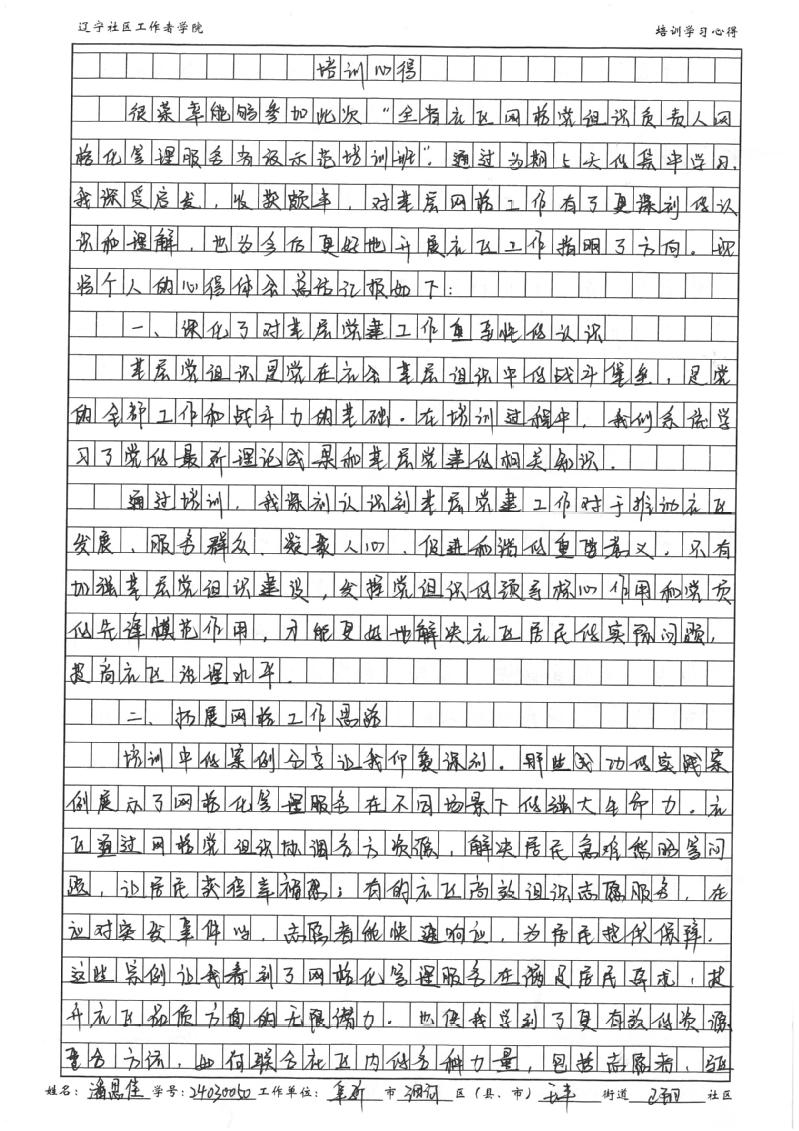 辽宁社区工作者学院 培训学习心得
培训心得
很荣幸能够参加此次“全省社区网格党组织负责人网
格化管理服务专设示范培训班”。通过为期5天的集中学习,
我深受启发,收获颇丰,对基层网格工作有了更深刻的认
识和理解,也为今后更好地开展社区工作指明了方向。现
将个人的心得体会总结汇报如下:
一、深化了对基层党建工作重要性的认识
基层党组织是党在社会基层组织中的战斗堡垒,是党
的全部工作和战斗力的基础。在培训过程中,我们系统学
习了党的最新理论成果和基层党建的相关知识.
通过培训,我深刻认识到基层党建工作对于推动社区
发展、服务群众、凝聚人心、促进和谐的重要意义。只有
加强基层党组织建设,发挥党组织的领导核心作用和党员
的先锋模范作用,才能更好地解决社区居民的实际问题,
提高社区治理水平.
二、拓展网格工作思路
培训中的案例分享让我印象深刻。那些成功的实践案
例展示了网格化管理服务在不同场景下的强大生命力。社
区通过网格党组织协调各方资源,解决居民急难愁盼等问
题,让居民获得幸福感;有的社区高效组织志愿服务,在
应对突发事件时,志愿者能快速响应,为居民提供保障.
这些案例让我看到了网格化管理服务在满足居民需求,提
升社区品质方面的无限潜力。也使我学到了更有效的资源
整合方法,如何联合社区内的各种力量,包括志愿者、驻
姓名:潘思佳 学号:24030050 工作单位:阜新 市 细河 区(县、市) 街道 社区